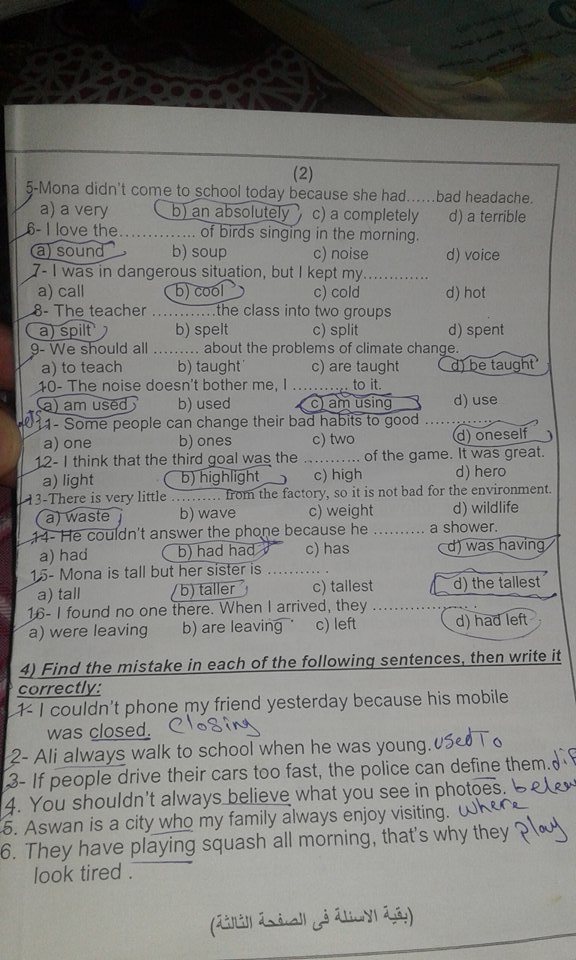 (2)
5-Mona didn't come to school today because she had......bad headache.
a) a very b) an absolutely c) a completely d) a terrible
6- I love the.............. of birds singing in the morning.
a) sound b) soup c) noise d) voice
7- I was in dangerous situation, but I kept my............
a) call b) cool c) cold d) hot
8- The teacher ............the class into two groups
a) spilt b) spelt c) split d) spent
9- We should all ......... about the problems of climate change.
a) to teach b) taught c) are taught d) be taught
10- The noise doesn't bother me, I ........... to it.
a) am used b) used c) am using d) use
11- Some people can change their bad habits to good .............
a) one b) ones c) two d) oneself
12- I think that the third goal was the .......... of the game. It was great.
a) light b) highlight c) high d) hero
13-There is very little .......... from the factory, so it is not bad for the environment.
a) waste b) wave c) weight d) wildlife
14- He couldn't answer the phone because he ......... a shower.
a) had b) had had c) has d) was having
15- Mona is tall but her sister is .......... .
a) tall b) taller c) tallest d) the tallest
16- I found no one there. When I arrived, they .................. .
a) were leaving b) are leaving c) left d) had left
4) Find the mistake in each of the following sentences, then write it
correctly:
1- I couldn't phone my friend yesterday because his mobile
was closed. Closing
2- Ali always walk to school when he was young. used To
3- If people drive their cars too fast, the police can define them.
4. You shouldn't always believe what you see in photoes.
5. Aswan is a city who my family always enjoy visiting. where
6. They have playing squash all morning, that's why they play
look tired .
(بقية الاسئلة فى الصفحة الثالثة)